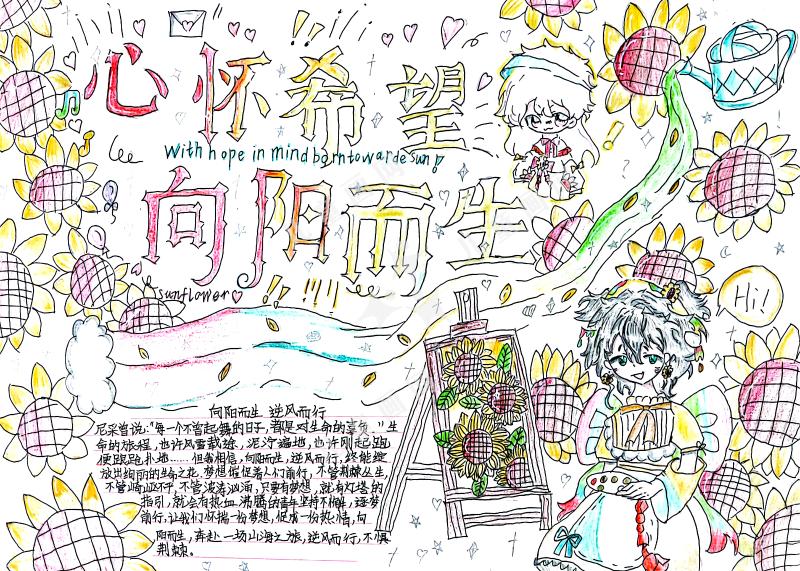 心怀希望
with hope in mind born toward e sun!
向阳而生
sunflower
Hi!
向阳而生 逆风而行
尼采曾说:"每一个不曾起舞的日子,都是对生命的辜负。"生
命的旅程,也许风雪载途,泥泞遍地,也许刚起跑
便跟跑扑地……但我相信,向阳而生,逆风而行,终能绽
放出绚丽的生命之花。梦想催促着人们前行,不管荆棘丛生,
不管崎岖不平,不管波涛汹涌,只要有梦想,就有灯塔的
指引,就会有热血沸腾的青年坚持不懈,逐梦
前行,让我们怀揣一份梦想,保留一份热情,向
阳而生,奔赴一场山海之旅,逆风而行,不惧
荆棘。